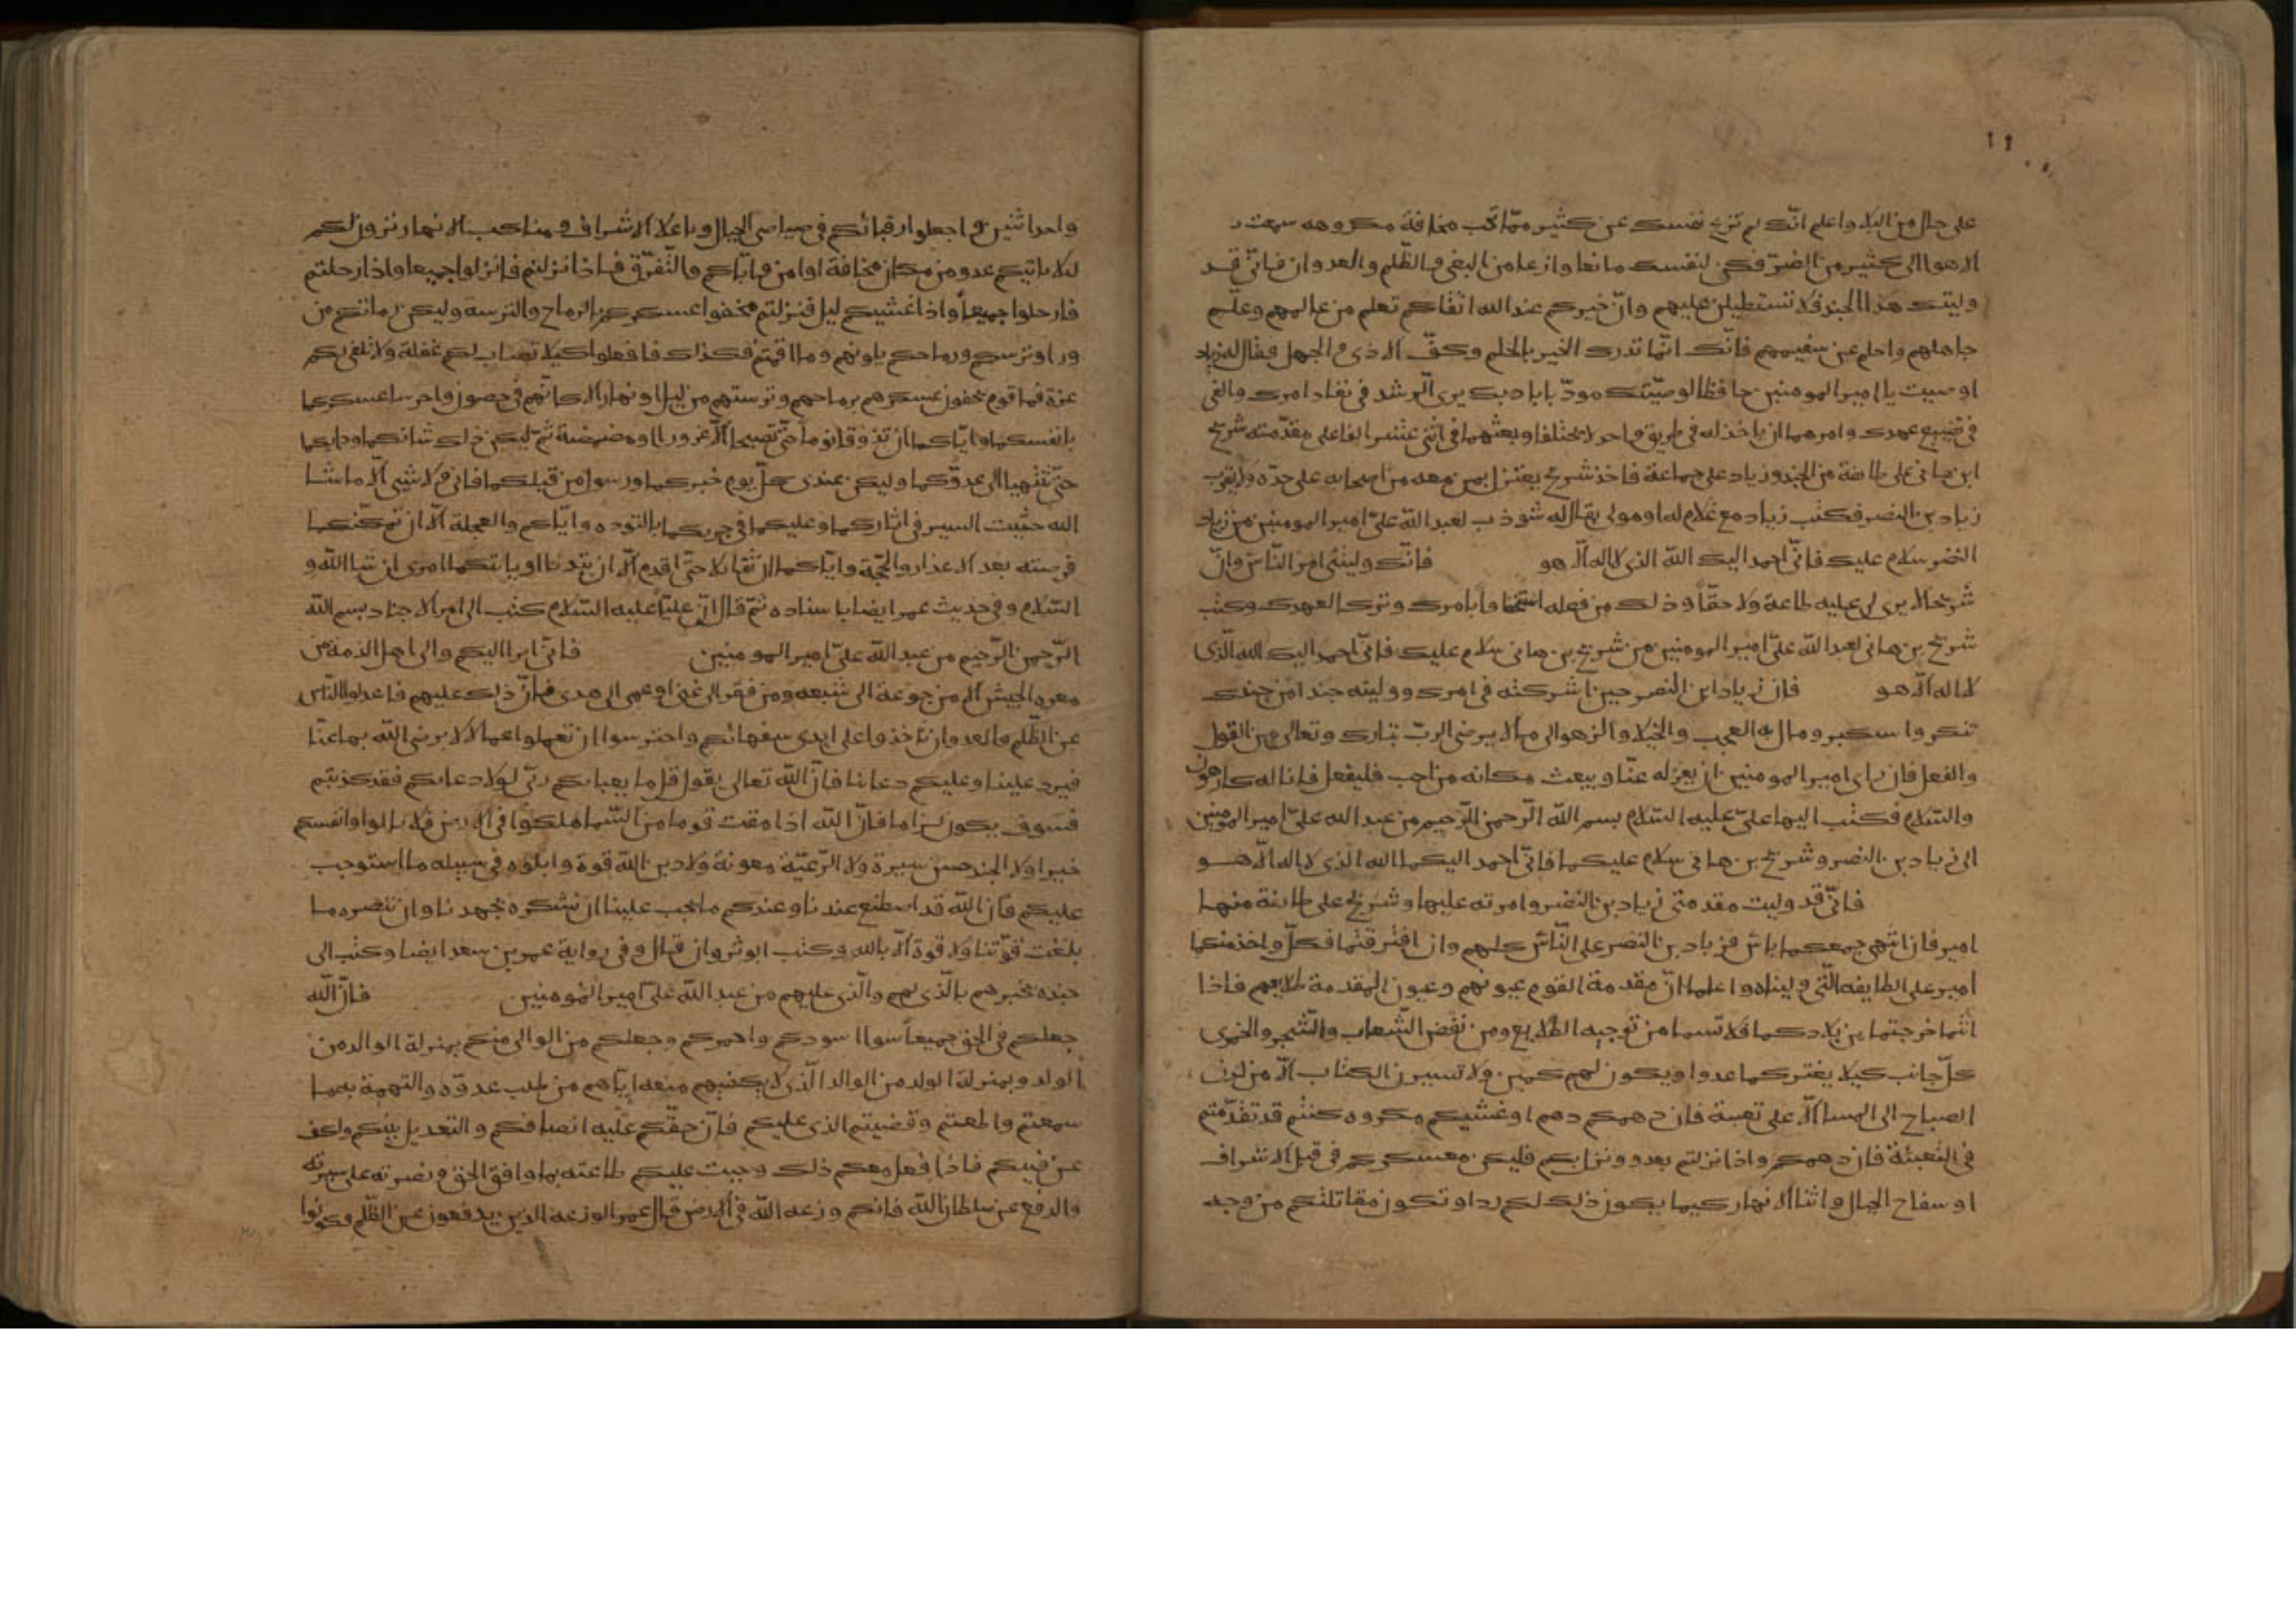 على حال من البلا واعلم انّك لم تزع نفسك عن كثير ممّا تحب مخافة مكروهه سمعت بك
الاهوا الى كثير من الضرّ فكن لنفسك مانعا وازعا من البغي والظّلم والعدوان فانّي قد
وليتك هذا الجند فلا تستطيلن عليهم وانّ خيركم عند الله اتقاكم تعلم من عالمهم وعلّم
جاهلهم واحلم عن سفيههم فانّك انّما تدرك الخير بالحلم وكفّ الاذى والجهل فقال له زياد
اوصيت يا امير المومنين حافظا لوصيّتك مودّبا بادبك يرى الرشد في نفاد امرك والغى
في تضييع عهدك وامرهما ان ياخذ له في طريق واحد لا يختلفا وبعثهما في اثنى عشر الفا على مقدّمته شريح
ابن هانى على طايفة من الجند وزياد على جماعة فاخذ شريح يعتزل بمن معه من اصحابه على حدّه ولا يقرب
زياد بن النضر فكتب زياد مع غلام له او مولى يقال له شوذب لعبد الله علىّ امير المومنين من زياد
النضر سلام عليك فانّى احمد اليك الله الذى لا اله الّا هو فانّك وليتنى امر النّاس وانّ
شريحا لا يرى لى عليه طاعة ولا حقّاً وذلك من فعله استخفافا بامرك وترك العهدك وكتب
شريح بن هانى لعبد الله علىّ امير المومنين من شريح بن هانى سلام عليك فانّى احمد اليك الله الّذى
لا اله الّا هو فان زياد ابن النضر حين اشركته في امرك ووليته جندا من جندك
تنكر واستكبر ومال به العجب والخيلا والزهو الى ما لا يرضى الربّ تبارك وتعالى من القول
والفعل فان راى امير المومنين ان يعزله عنّا ويبعث مكانه من احب فليفعل فانا له كارهون
والسّلام فكتب اليهما علىّ عليه السّلام بسم الله الرّحمن الرّحيم من عبد الله علىّ امير المومنين
الى زياد بن النضر وشريح بن هانى سلام عليكما فانّى احمد اليكما الله الذى لا اله الّا هو
فانّى قد وليت مقدمتى زياد بن النّضر وامرته عليها وشريح على طايفة منها
امير فان انتهى جمعكما باس فزياد بن النضر على النّاس كلهم وان افترقتما فكلّ واحد منكما
امير على الطايفه الّتى وليناه واعلما انّ مقدمة القوم عيونهم وعيون المقدمة طلايعهم فاذا
انتما خرجتما من بلادكما فلا تسما من توجيه الطلايع ومن نفض الشّعاب والشّجر والخمرى
كلّ جانب كيلا يغتركما عدو او يكون لهم كمين ولا تسيرن الكتاب الّا من لدن
الصباح الى المسا الّا على تعبية فان دهمكم دهم او غشيكم مكروه كنتم قد تقدّمتم
في التعبئة فان دهمكم واذا نزلتم بعدو ونزل بكم فليكن معسكركم في قبل الاشراف
او سفاح الجبال واثنا الانهار كيما يكون ذلك لكم ردا وتكون مقاتلتكم من وجه
واحد اثنين واجعلوا رقبائكم في صياصى الجبال وباعلا الاشراف ومناكب الانهار نزول لكم
ليلا ياتيكم عدو من مكان مخافة او امن وايّاكم والتّفرّق فاذا نزلتم فانزلوا جميعا واذا رحلتم
فارحلوا جميعاً واذا غشيكم ليل فنزلتم فحفوا عسكركم بالرماح والترسة وليكن رماتكم من
ورا وترسكم ورماحكم يلونهم وما اقمتم فكذلك فافعلوا كيلا تصاب لكم غفلة ولا تلفى لكم
عزة فما قوم يحفون عسكرهم برماحهم وترستهم من ليل او نهار الا كانّهم في حصون واحرسا عسكركما
بانفسكما وايّاكما ان تذوقا نوما حتّى تصبحا الّا غرورا او مضمضة ثمّ ليكن ذلك شانكما ودابكما
حتّى تنتهيا الى عدوّكما وليكن عندى كلّ يوم خبركما ورسول من قبلكما فانى ولا شيى الّا ما شا
الله حثيث السير في اثاركما وعليكما في حربكما بالتوده وايّاكم والعجلة الّا ان تمكّنكما
فرصته بعد الاعذار والحجّة وايّاكما ان تقاتلا حتّى اقدم الّا ان تبدا او ياتيكما امرى ان شا الله و
السّلام وفي حديث عمر ايضا باسناده ثمّ قال انّ عليّا عليه السّلام كتب الى امرا الاجناد بسم الله
الرّحمن الرّحيم من عبد الله علىّ امير المومنين فانّى ابرا اليكم والى اهل الذمة من
معره الجيش الا من جوعة الى شبعه ومن فقر الى غنى او عمى الى هدى فانّ ذلك عليهم فاعدلوا النّاس
عن الظّلم والعدوان تاخذوا على ايدى سفهائكم واحترسوا ان تعملوا اعمالا لا يرضى الله بها عنّا
فيرد علينا وعليكم دعانا فانّ الله تعالى يقول قل ما يعبا بكم ربّى لولا دعاكم فقد كذبتم
فسوف يكون لزاما فانّ الله اذا مقت قوما من السّما هلكوا في الارض فلا تالوا وانفسكم
خيرا ولا الجند حسن سيرة ولا الرّعيّة معونة ولا دين الله قوة وابلوه في سبيله ما استوجب
عليكم فانّ الله قد اصطنع عندنا وعندكم ما يجب علينا ان نشكره بجهدنا وان ننصره ما
بلغت قوّتنا ولا قوة الّا بالله وكتب ابو ثروان قال وفى رواية عمر بن سعد ايضا وكتب الى
جنده يخبرهم بالّذى لهم والّذى عليهم من عبد الله علىّ امير المومنين فانّ الله
جعلكم في الحق جميعاً سوا اسودكم واحمركم وجعلكم من الوالى منكم بمنزلة الوالد من
الولد وبمنزلة الولد من الوالد الّذى لا يكفيهم منعه ايّاهم من طلب عدوّه والتهمة بما
سمعتم واطعتم وقضيتم الذى عليكم فانّ حقّكم عليه انصافكم والتعديل بينكم والكف
عن فيئكم فاذا فعل معكم ذلك وجبت عليكم طاعته بما وافق الحق ونصرته على سيرته
والدفع عن سلطان الله فانكم وزعه الله في الارض قال عمر الوزعه الذين يدفعون عن الظّلم وكونوا